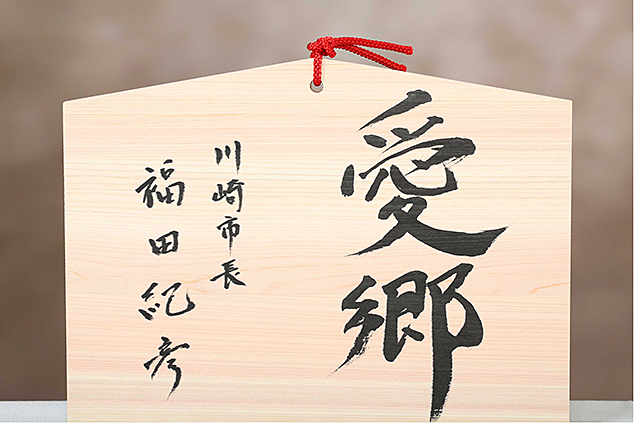 愛郷
川崎市長
福田紀彦